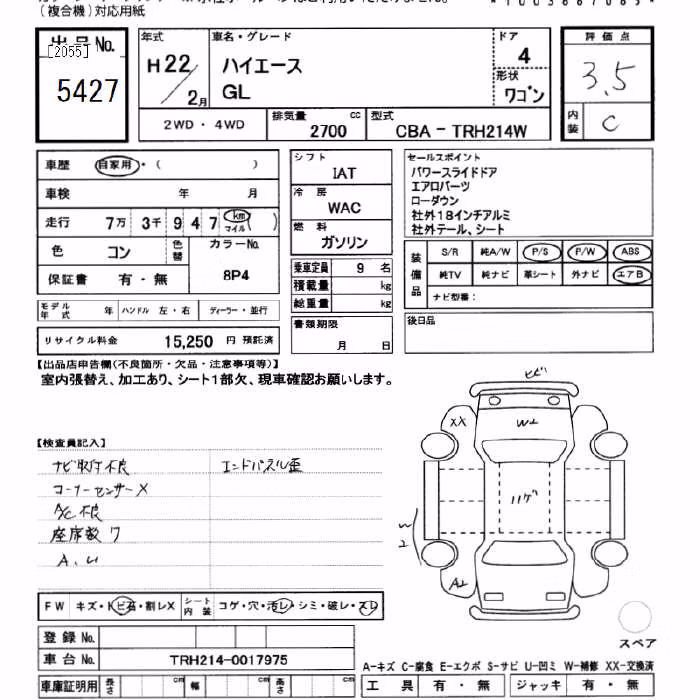 (複合機)対応用紙
出品No.
[2055]
5427
年式
H22/2月
車名・グレード
ハイエース
GL
ドア
4
形状
ワゴン
評価点
3.5
内装
C
2WD・4WD
排気量 cc
2700
型式
CBA - TRH214W
車歴 自家用・( )
車検 年 月
走行 7万 3千 9 4 7 km マイル ( )
色 コン
色替
カラーNo.
8P4
保証書 有・無
モデル年式 年 ハンドル 左・右 ディーラー・並行
リサイクル料金 15,250 円 預託済
シフト
IAT
冷房
WAC
燃料
ガソリン
乗車定員 9 名
積載量 kg
総重量 kg
書類期限
月 日
セールスポイント
パワースライドドア
エアロパーツ
ローダウン
社外18インチアルミ
社外テール、シート
装備品
S/R 純A/W P/S P/W ABS
純TV 純ナビ 革シート 外ナビ エアB
ナビ型番:
後日品
【出品店申告欄(不良箇所・欠品・注意事項等)】
室内張替え、加工あり、シート1部欠、現車確認お願いします。
【検査員記入】
ナビ取付不良
エンドパネル歪
コーナーセンサーX
A/C不良
座席数7
ヒビ
XX
W⊥
ハゲ
W2
A⊥
FW キズ・ヒビ有・割レX
シート内装 コゲ・穴・汚レ・シミ・破レ・スレ
登録No.
車台No. TRH214-0017975
車庫証明用 長さ cm 幅 cm 高さ cm
スペア
A-キズ C-腐食 E-エクボ S-サビ U-凹ミ W-補修 XX-交換済
工具 有・無 ジャッキ 有・無